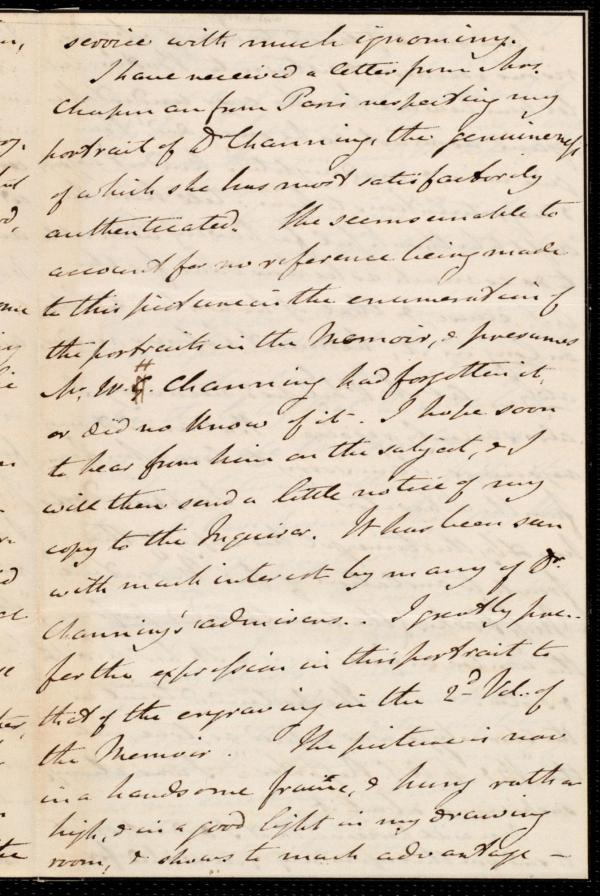 service with much ignominy.
I have received a letter from Mrs.
Chapman from Paris respecting my
portrait of Dr Channing, the genuineness
of which she has most satisfactorily
authenticated. She seems unable to
account for no reference being made
to this picture in the enumeration of
the portraits in the Memoir, & presumes
Mr. W. H. Channing had forgotten it,
or did no know of it. I hope soon
to hear from him on the subject, & I
will then send a little notice of my
copy to the Inquirer. It has been seen
with much interest by many of Dr.
Channing's admirers. I greatly pre-
fer the expression in this portrait to
that of the engraving in the 2d Vol. of
the Memoir. The picture is now
in a handsome frame, & hung rather
high, & in a good light in my drawing
room, & shows to much advantage -